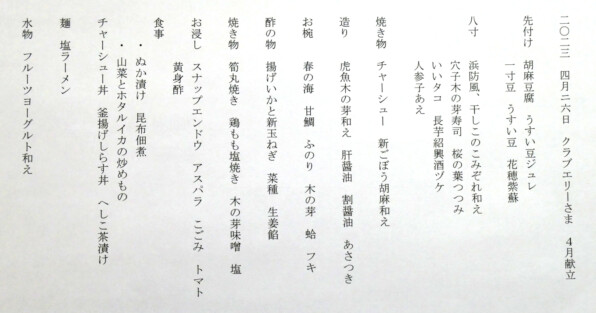 二〇二三　四月二六日　クラブエリーさま　４月献立
先付け　胡麻豆腐　うすい豆ジュレ
一寸豆　うすい豆　花穂紫蘇
八寸　浜防風、干しこのこみぞれ和え
穴子木の芽寿司　桜の葉つつみ
いいタコ　長芋紹興酒ヅケ
人参子あえ
焼き物　チャーシュー　新ごぼう胡麻和え
造り　虎魚木の芽和え　肝醤油　割醤油　あさつき
お椀　春の海　甘鯛　ふのり　木の芽　蛤　フキ
酢の物　揚げいかと新玉ねぎ　菜種　生姜餡
焼き物　筍丸焼き　鶏もも塩焼き　木の芽味噌　塩
お浸し　スナップエンドウ　アスパラ　こごみ　トマト
黄身酢
食事
・ぬか漬け　昆布佃煮
・山菜とホタルイカの炒めもの
チャーシュー丼　釜揚げしらす丼　へしこ茶漬け
麺　塩ラーメン
水物　フルーツヨーグルト和え